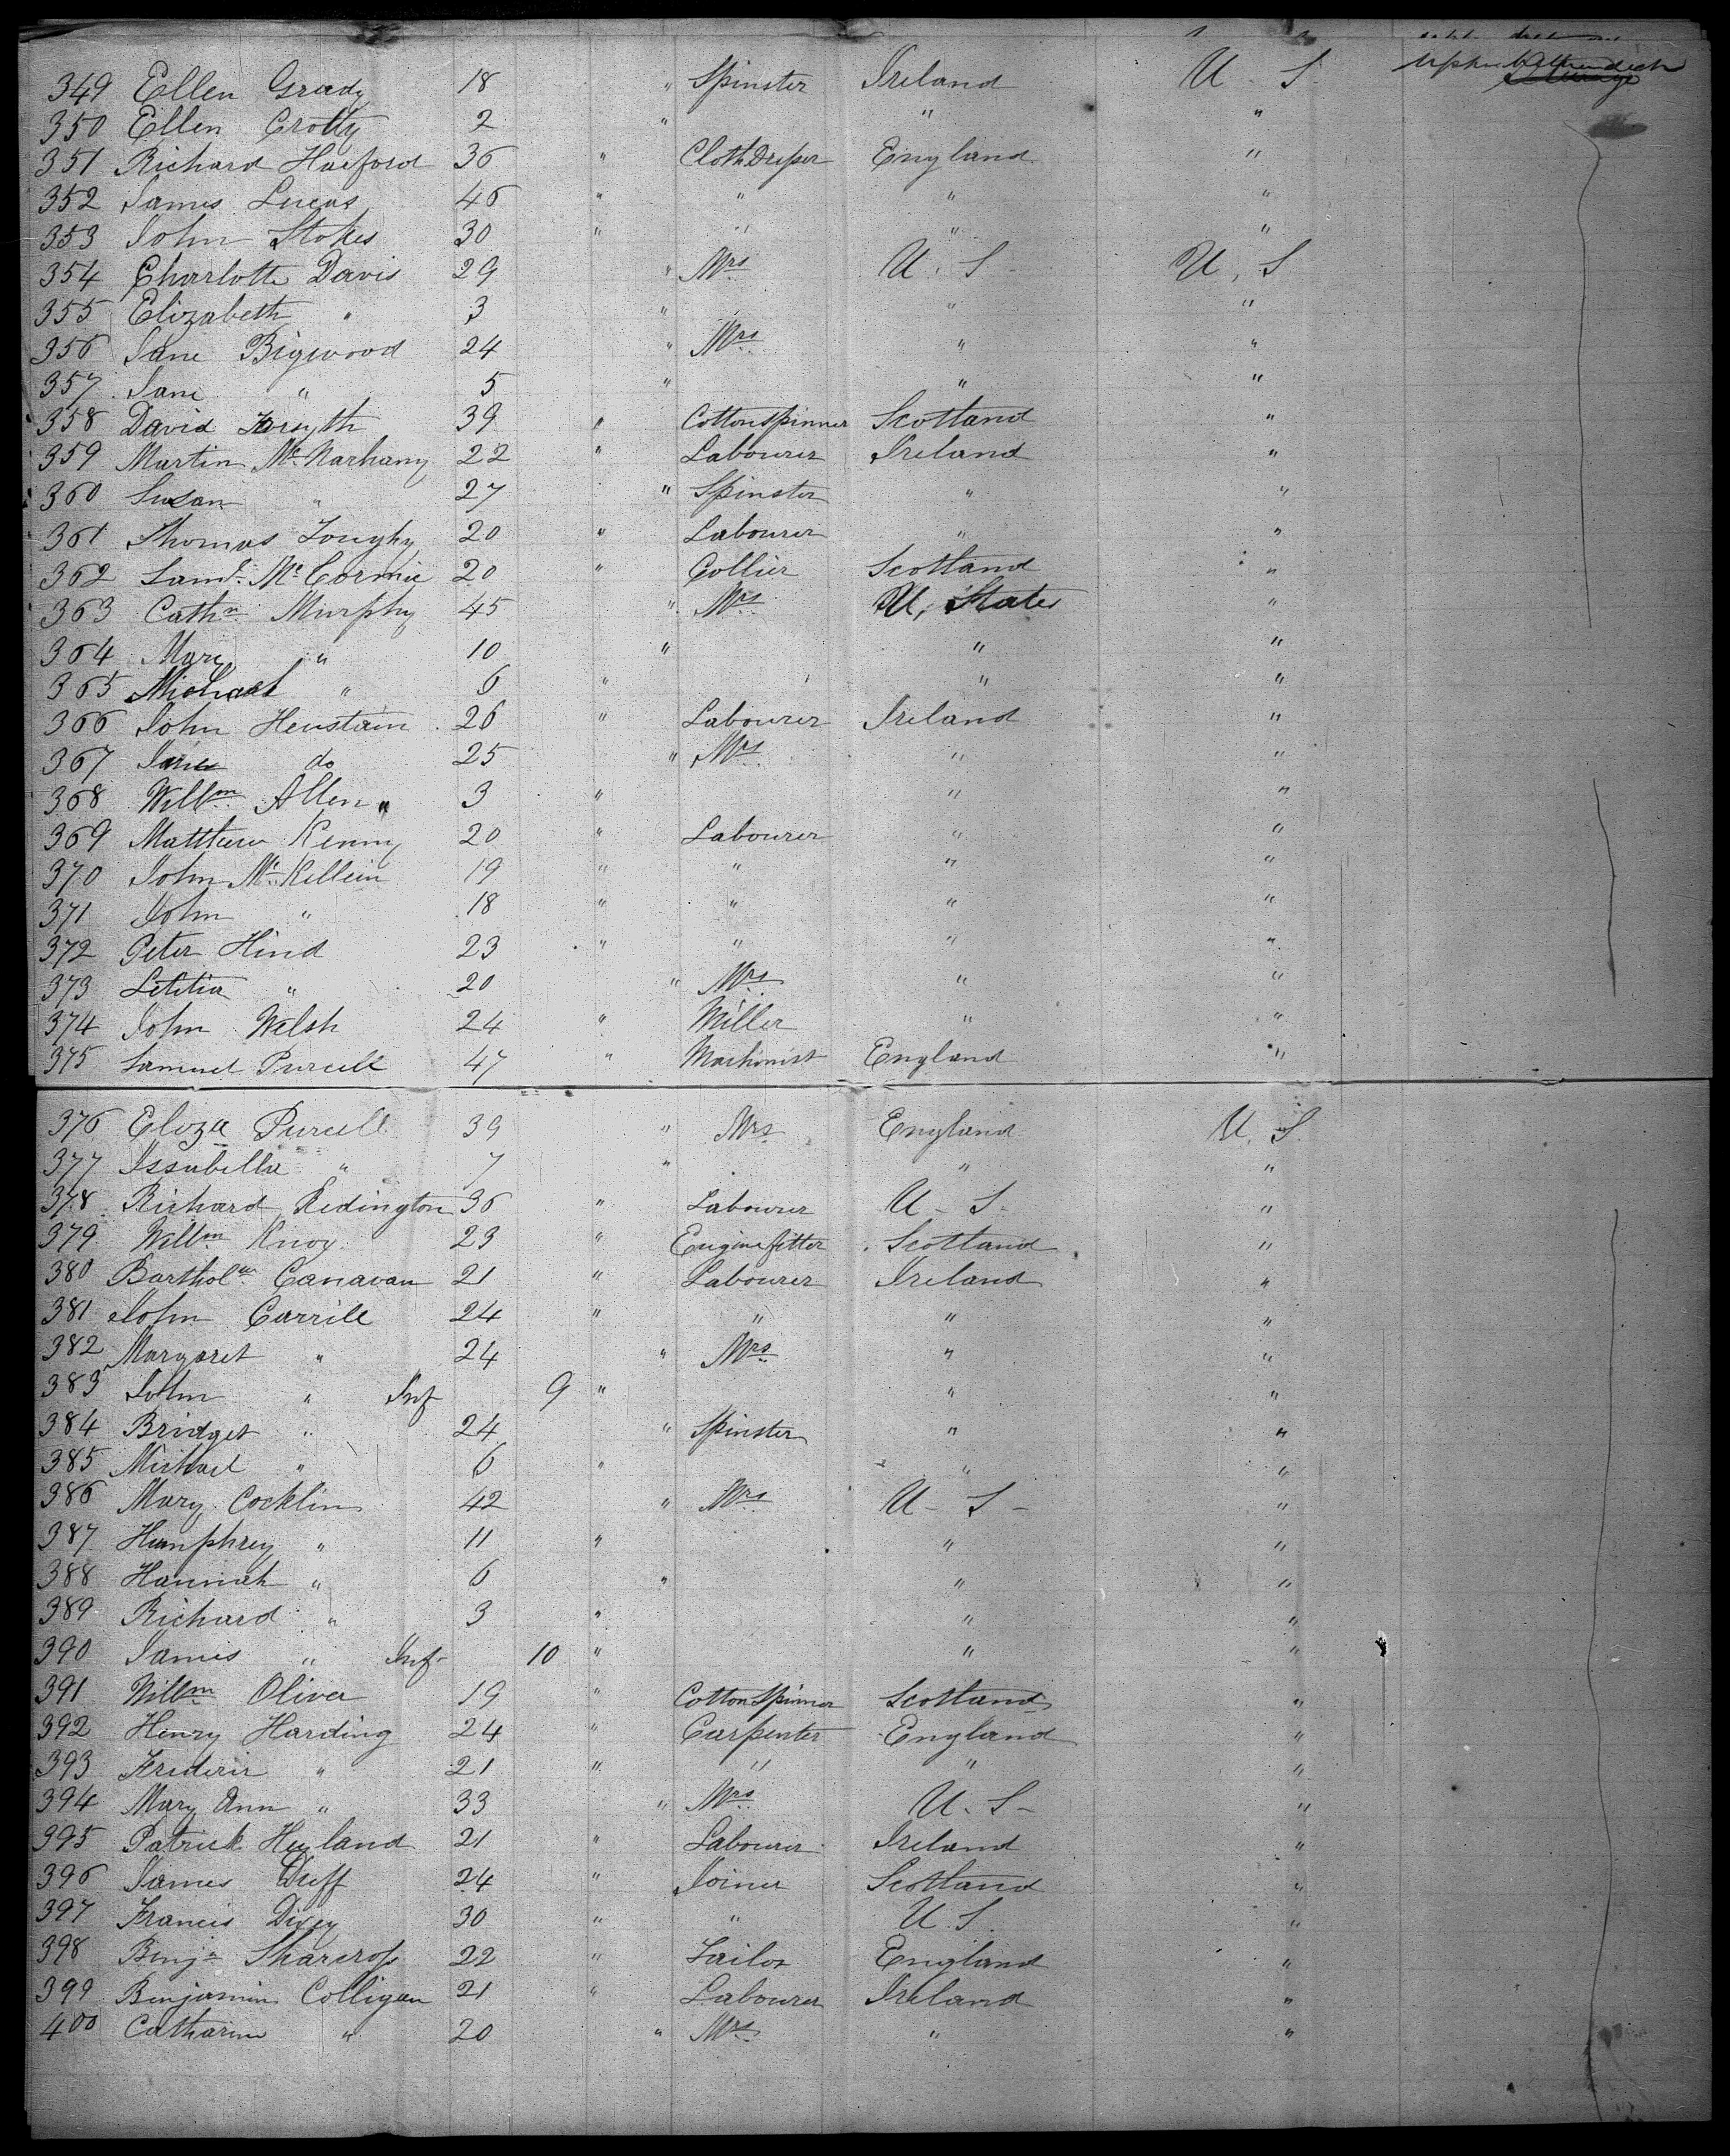 349 Ellen Grady 18 " Spinster Ireland U. S.
350 Ellen Crotty 2 " " "
351 Richard Harford 36 " Cloth Dresser England "
352 James Lucas 46 " " " "
353 John Stokes 30 " " " "
354 Charlotte Davis 29 " Mrs U. S - U. S
355 Elizabeth " 3 " " "
356 Jane Bigwood 24 " Mrs " "
357 Jane " 5 " " "
358 David Forsyth 39 " Cotton Spinner Scotland "
359 Martin Mc Narhany 22 " Labourer Ireland "
360 Susan " 27 " Spinster " "
361 Thomas Toughy 20 " Labourer " "
362 Saml. Mc Cormic 20 " Collier Scotland "
363 Cathn Murphy 45 " Mrs U. States "
364 Mary " 10 " " "
365 Michael " 6 " " "
366 John Henstain 26 " Labourer Ireland "
367 Jane do 25 " Mrs " "
368 Willm Allen " 3 " " "
369 Matthew Kenny 20 " Labourer " "
370 John Mc Killein 19 " " " "
371 John " 18 " " " "
372 Peter Hind 23 " " " "
373 Letitia " 20 " Mrs " "
374 John Welsh 24 " Miller " "
375 Samuel Purcell 47 " Machinist England "
376 Eliza Purcell 39 " Mrs England U. S.
377 Issabella " 7 " " "
378 Richard Redington 36 " Labourer U - S - "
379 Willm Knox 23 " Engine fitter Scotland "
380 Bartholw Canavan 21 " Labourer Ireland "
381 John Carrill 24 " " " "
382 Margaret " 24 " Mrs " "
383 John " Inf 9 " " "
384 Bridget " 24 " Spinster " "
385 Michael " 6 " " "
386 Mary Cocklin 42 " Mrs U - S - "
387 Humphrey " 11 " " "
388 Hannah " 6 " " "
389 Richard " 3 " " "
390 James " Inf 10 " " "
391 Willm Oliver 19 " Cotton Spinner Scotland "
392 Henry Harding 24 " Carpenter England "
393 Frederic " 21 " " " "
394 Mary Ann " 33 " Mrs U. S - "
395 Patrick Heyland 21 " Labourer Ireland "
396 James Duff 24 " Joiner Scotland "
397 Francis Divey 30 " " U. S. "
398 Benjn Sharcross 22 " Tailor England "
399 Benjamin Colligan 21 " Labourer Ireland "
400 Catharine " 20 " Mrs " "